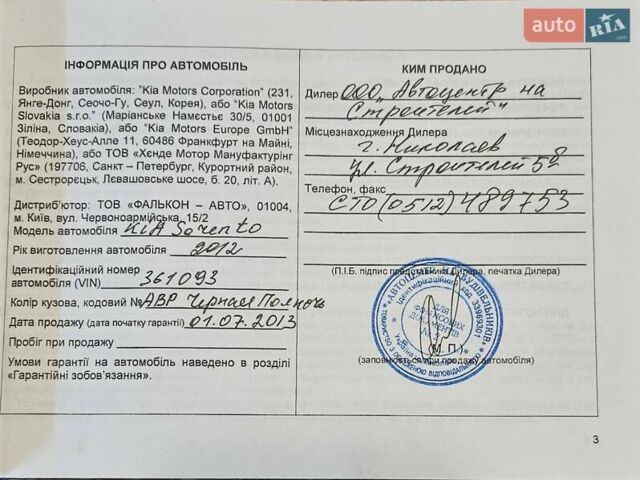 auto RIA
ІНФОРМАЦІЯ ПРО АВТОМОБІЛЬ
Виробник автомобіля: "Kia Motors Corporation" (231,
Янге-Донг, Сеочо-Гу, Сеул, Корея), або "Kia Motors
Slovakia s.r.o." (Маріанське Намєстьє 30/5, 01001
Зіліна, Словакія), або "Kia Motors Europe GmbH"
(Теодор-Хеус-Алле 11, 60486 Франкфурт на Майні,
Німеччина), або ТОВ «Хєнде Мотор Мануфактурінг
Рус» (197706, Санкт – Петербург, Курортний район,
м. Сестрорєцьк, Лєвашовське шосе, б. 20, літ. А).
Дистриб'ютор: ТОВ «ФАЛЬКОН – АВТО», 01004,
м. Київ, вул. Червоноармійська, 15/2
Модель автомобіля KIA Sorento
Рік виготовлення автомобіля 2012
Ідентифікаційний номер
автомобіля (VIN) 361093
Колір кузова, кодовий № АВР Черная Полночь
Дата продажу (дата початку гарантії) 01.07.2013
Пробіг при продажу
Умови гарантії на автомобіль наведено в розділі
«Гарантійні зобов'язання».
КИМ ПРОДАНО
Дилер ООО „Автоцентр на
Строителей"
Місцезнаходження Дилера
г. Николаев
ул. Строителей 5
Телефон, факс
СТО (0512) 489753
(П.І.Б. підпис представника Дилера, печатка Дилера)
(М.П.)
(заповнюється при продажу автомобіля)
ДЛЯ
ФІНАНСОВИХ
ДОКУМЕНТІВ
3